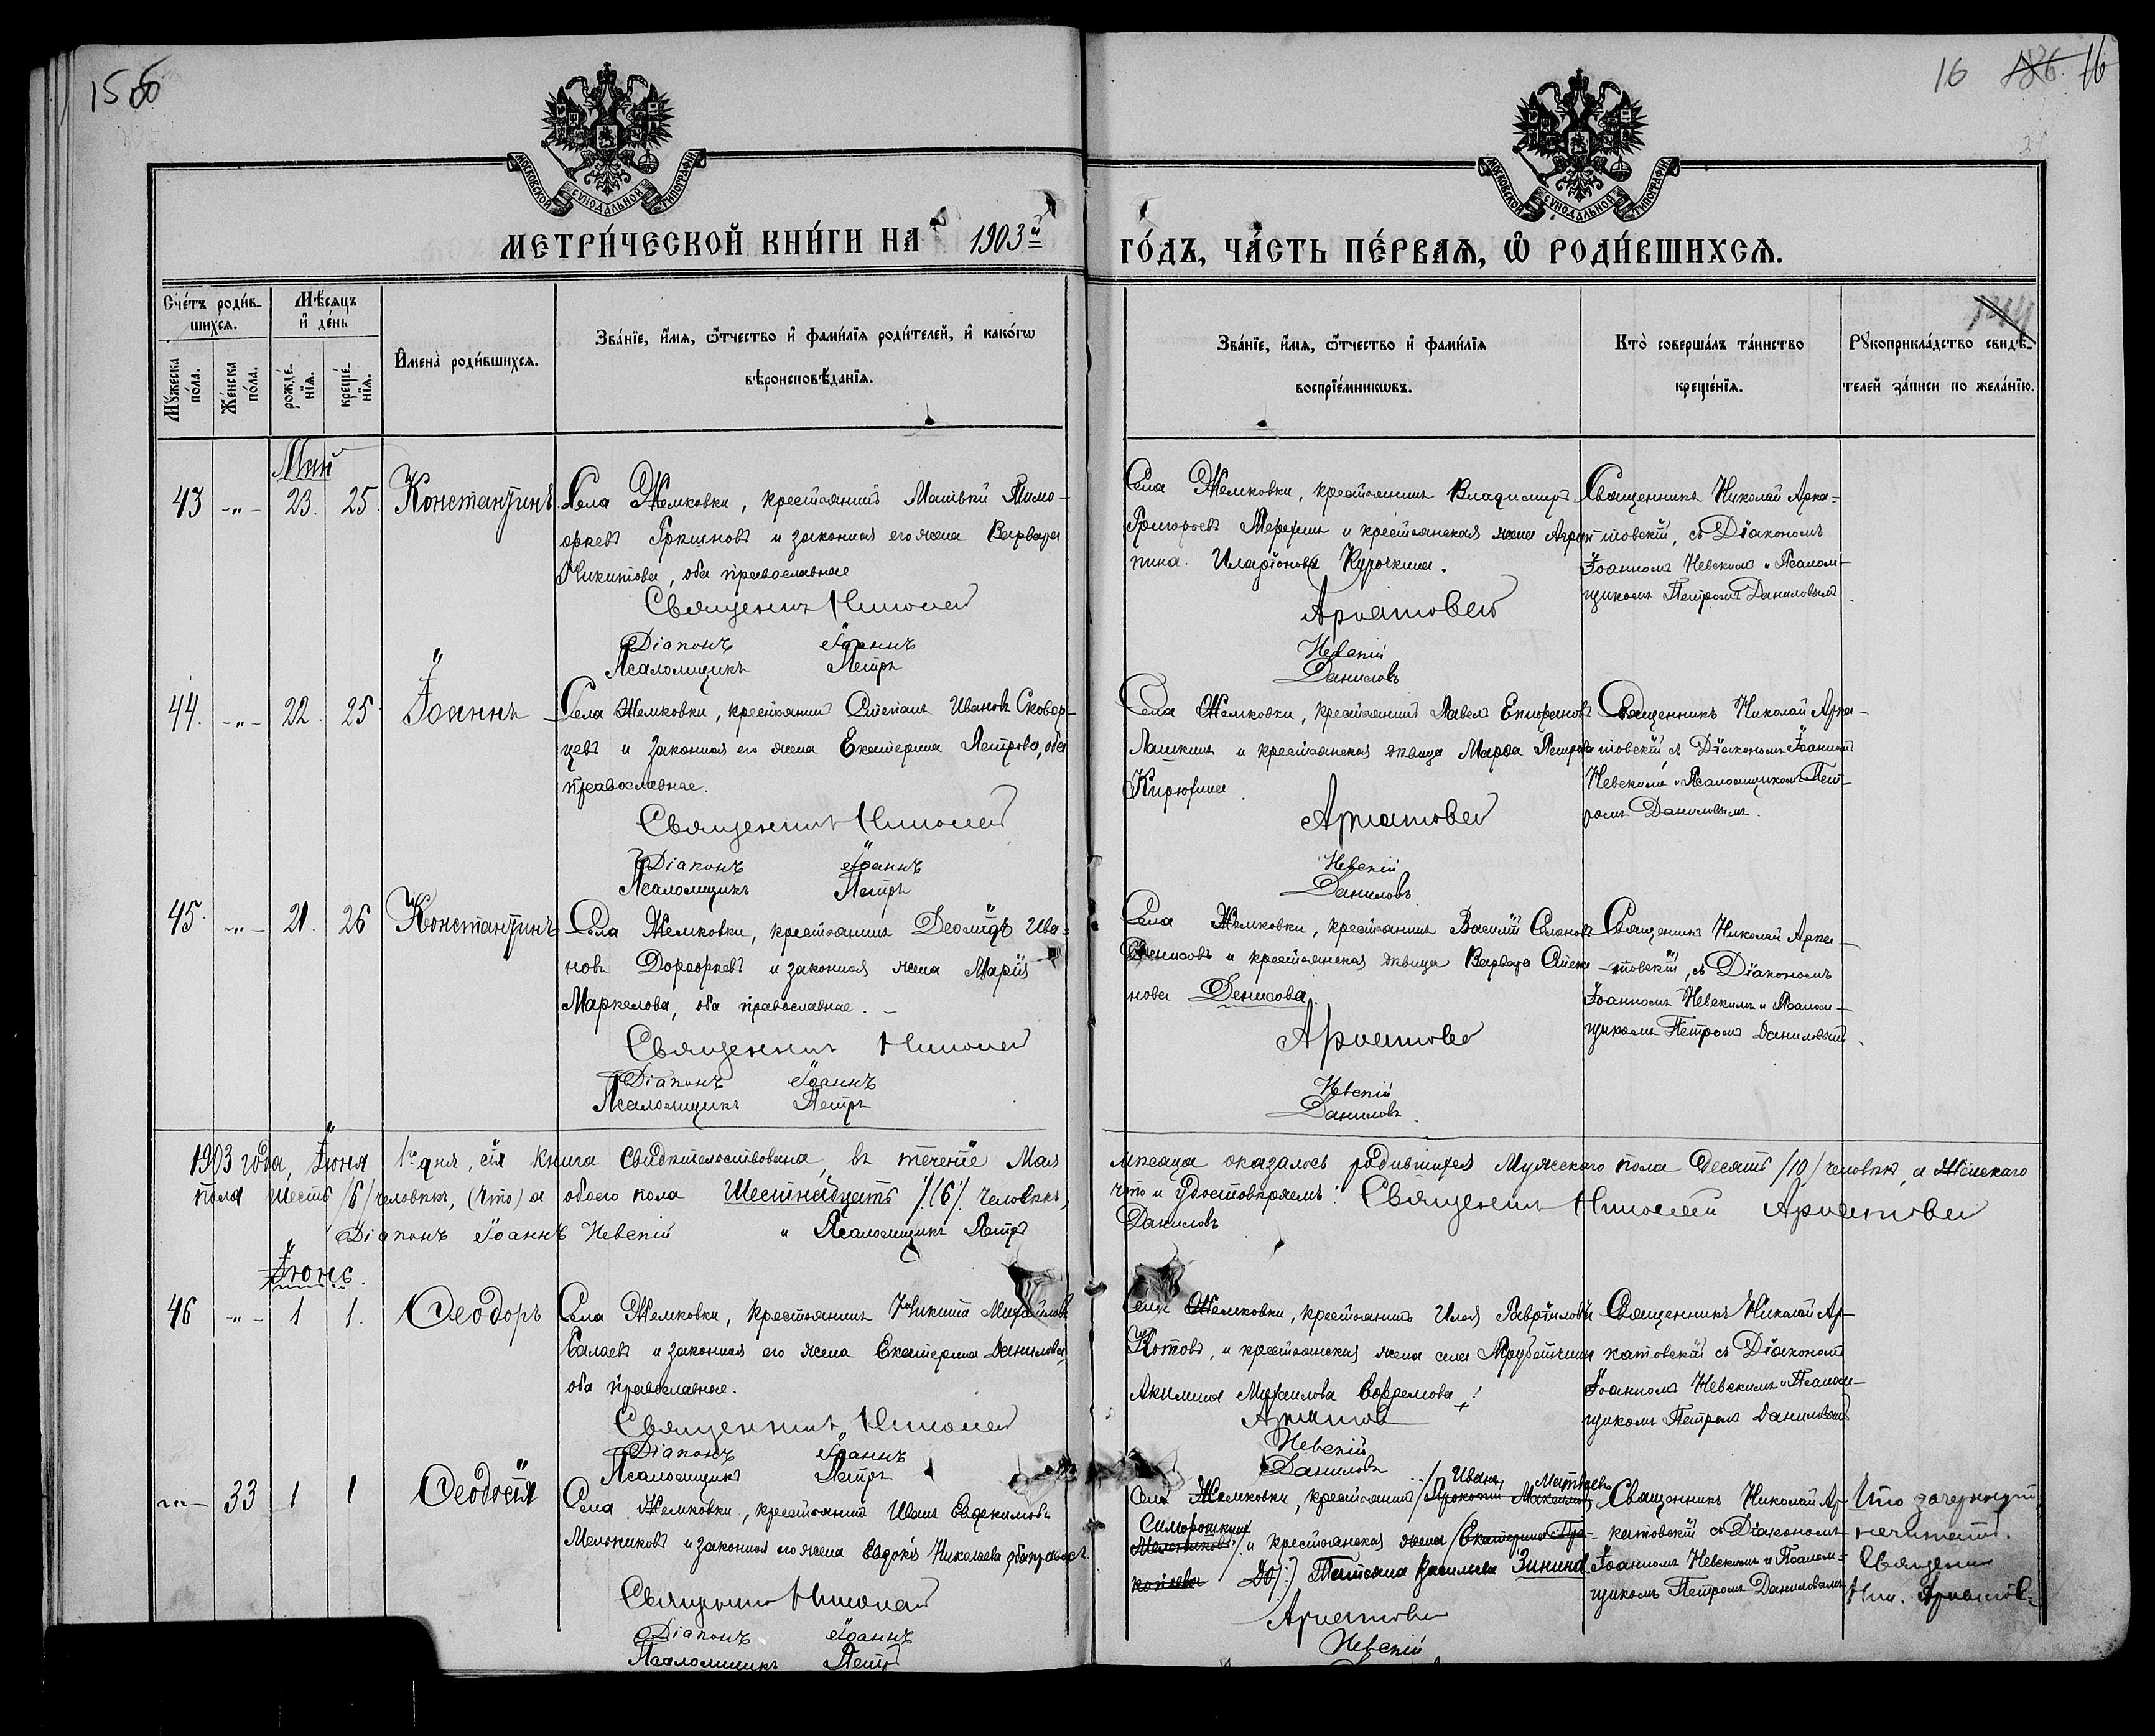 15 об
16 186 16
МОСКОВСКОЙ СѴНОДАЛЬНОЙ ТИПОГРАФІИ
МОСКОВСКОЙ СѴНОДАЛЬНОЙ ТИПОГРАФІИ
МЕТРИ́ЧЕСКОЙ КНИ́ГИ НА 1903й
ГО́ДЪ, ЧА́СТЬ ПЕ́РВАѦ, Ѽ РОДИ́ВШИХСѦ.
Сче́тъ роди́в-
шихсѧ.
Мѣ́сѧцъ
и҆ де́нь
Мꙋжеска по́ла.
Же́нска по́ла.
рожде́-
нїѧ.
креще́-
нїѧ.
И҆мена̀ роди́вшихсѧ.
Зва́нїе, и҆́мѧ, ѻ҆́тчество и҆ фами́лїѧ роди́телей, и҆ како́гѡ
вѣроисповѣ́данїѧ.
Зва́нїе, и҆́мѧ, ѻ҆́тчество и҆ фами́лїѧ
воспрїе́мникѡвъ.
Кто̀ соверша́лъ та́инство
креще́нїѧ.
Рꙋкоприкла́дство свидѣ́-
телей за́писи по жела́нїю.
Май
43 -"- 23. 25. Константинъ.
Села Жемковки, крестьянинъ Матвѣй Тимо-
ѳеевъ и законная его жена Варвара
Никитова, оба православные
Священникъ Николай
Діаконъ Іоаннъ
Псаломщикъ Петръ
Села Жемковки, крестьянинъ Владимиръ
Григорьевъ и крестьянская жена Агрип-
пина Иларіонова Курочкина.
Аркатовскій
Невскій
Даниловъ
Священникъ Николай Арка-
товскій, съ Діакономъ
Іоанномъ Невскимъ и Псалом-
щикомъ Петромъ Даниловымъ
44. -"- 22. 25 Іоаннъ
Села Жемковки, крестьянинъ Степанъ Ивановъ Сквор-
цевъ и законная его жена Екатерина Петрова, оба
православные.
Священникъ Николай
Діаконъ Іоаннъ
Псаломщикъ Петръ
Села Жемковки, крестьянинъ Павелъ Епифановъ
Лашкинъ и крестьянская дѣвица Марѳа Петрова
Кирюхина.
Аркатовскій
Невскій
Даниловъ
Священникъ Николай Арка-
товскій съ Діакономъ Іоанномъ
Невскимъ и Псаломщикомъ Пет-
ромъ Даниловымъ.
45. -"- 21. 26 Константинъ
Села Жемковки, крестьянинъ Деомидъ Ива-
новъ Дороѳеевъ и законная жена Марія
Маркелова, оба православные.
Священникъ Николай
Діаконъ Іоаннъ
Псаломщикъ Петръ
Села Жемковки, крестьянинъ Василій
Денисовъ и крестьянская дѣвица Варвара Степа-
нова Денисова.
Аркатовскій
Невскій
Даниловъ.
Священникъ Николай Арка-
товскій, съ Діакономъ
Іоанномъ Невскимъ и Псалом-
щикомъ Петромъ Даниловымъ.
1903 года, Іюня 1го дня, сія книга свидѣтельствована, въ теченіе Мая мѣсяца оказалось родившихся мужескаго пола десять /10/ человѣкъ, а женскаго
пола шесть /6/ человѣкъ, (что) а обоего пола шестнадцать /16/ человѣкъ, что и удостовѣряемъ: Священникъ Николай Аркатовскій
Діаконъ Іоаннъ Невскій и Псаломщикъ Петръ Даниловъ
Іюнь.
46 -"- 1 1. Ѳеодоръ
Села Жемковки, крестьянинъ Никита Михайловъ
Балаевъ и законная его жена Екатерина Данилова,
оба православные.
Священникъ Николай
Діаконъ Іоаннъ
Псаломщикъ Петръ
Села Жемковки, крестьянинъ Илья Гавріиловъ
Котовъ, и крестьянская жена села Трубетчины
Акилина Михаилова Ефремова
Аркатов
Невскій
Даниловъ
Священникъ Николай Ар-
катовскій съ Діакономъ
Іоанномъ Невскимъ и Псалом-
щикомъ Петромъ Даниловымъ
-"- 33 1 1 Ѳеодосія
Села Жемковки, крестьянинъ Иванъ Евдокимовъ
Мельниковъ и законная его жена Евдокія Николаева оба правосл.
Священникъ Николай
Діаконъ Іоаннъ
Псаломщикъ Петръ
Иванъ Матвѣевъ
Села Жемковки, крестьянинъ /Прокопій
Мельниковъ/ и крестьянская жена /Екатерина Про-
копьева Татіана Васильева Зинина
Аркатовскій
Невскій
Священникъ Николай Ар-
катовскій съ Діакономъ
Іоанномъ Невскимъ и Псалом-
щикомъ Петромъ Даниловымъ
Что зачеркнуто,
не читать.
Священникъ
Ник. Аркатов-